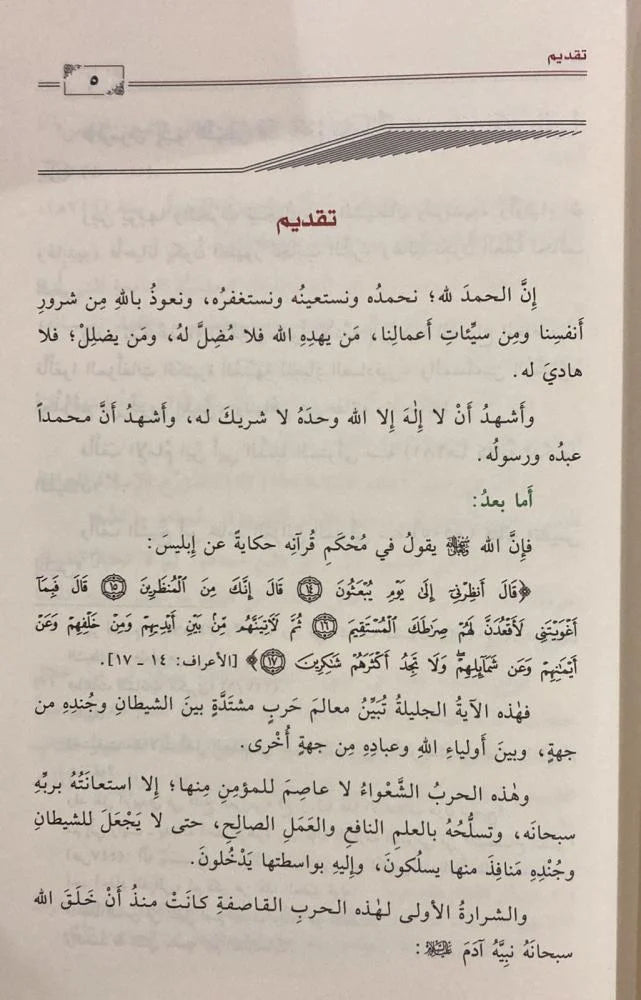 تقديم
٥
تقديم
إنَّ الحمدَ لله؛ نحمدُه ونستعينُه ونستغفرُه، ونعوذُ باللهِ مِن شرورِ
أَنفسِنا ومِن سيِّئاتِ أَعمالِنا، مَن يهدِهِ الله فلا مُضِلَّ لهُ، ومَن يضلِلْ؛ فلا
هاديَ له.
وأَشهدُ أَنْ لا إِلٰهَ إلا الله وحدَهُ لا شريكَ له، وأَشهدُ أَنَّ محمداً
عبدُه ورسولُه.
أَما بعدُ:
فإِنَّ الله ﷻ يقولُ في مُحْكَمِ قُرآنِه حكايةً عن إِبليسَ:
﴿قَالَ أَنظِرْنِىٓ إِلَىٰ يَوْمِ يُبْعَثُونَ ۝١٤ قَالَ إِنَّكَ مِنَ ٱلْمُنظَرِينَ ۝١٥ قَالَ فَبِمَآ
أَغْوَيْتَنِى لَأَقْعُدَنَّ لَهُمْ صِرَٰطَكَ ٱلْمُسْتَقِيمَ ۝١٦ ثُمَّ لَءَاتِيَنَّهُم مِّنۢ بَيْنِ أَيْدِيهِمْ وَمِنْ خَلْفِهِمْ وَعَنْ
أَيْمَٰنِهِمْ وَعَن شَمَآئِلِهِمْ ۖ وَلَا تَجِدُ أَكْثَرَهُمْ شَٰكِرِينَ ۝١٧﴾ [الأعراف: ١٤ ـ ١٧].
فهٰذه الآيةُ الجليلةُ تُبَيِّنُ معالمَ حَربٍ مشتدَّةٍ بينَ الشيطانِ وجُندِهِ من
جهةٍ، وبينَ أَولياءِ اللهِ وعبادِهِ مِن جهةٍ أُخْرى.
وهٰذه الحربُ الشَّعْواءُ لا عاصِمَ للمؤمِنِ مِنها؛ إلا استعانَتُهُ بربِّهِ
سبحانَه، وتسلُّحُهُ بالعلمِ النافعِ والعَمَلِ الصالحِ، حتى لا يَجْعَلَ للشيطانِ
وجُنْدِهِ مَنافِذَ منها يسلُكونَ، وإليهِ بواسطتِها يَدْخُلونَ.
والشرارةُ الأولى لهٰذه الحربِ القاصفةِ كانَتْ منذُ أَنْ خَلَقَ الله
سبحانَهُ نبيَّهُ آدَمَ عليه السلام: